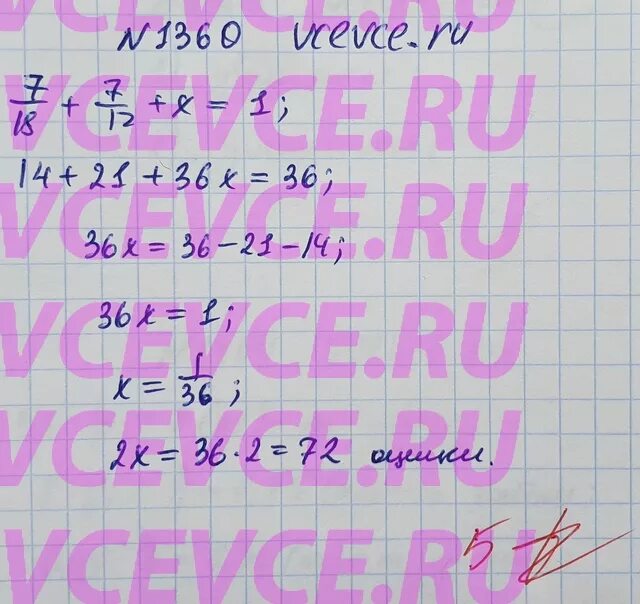 N1360 vcevce.ru
7/18 + 7/12 + x = 1;
14 + 21 + 36x = 36;
36x = 36 - 21 - 14;
36x = 1;
x = 1/36;
2x = 36 · 2 = 72 ящики.
5
VCEVCE.RU
VCEVCE.RU
VCEVCE.RU
VCEVCE.RU
VCEVCE.RU